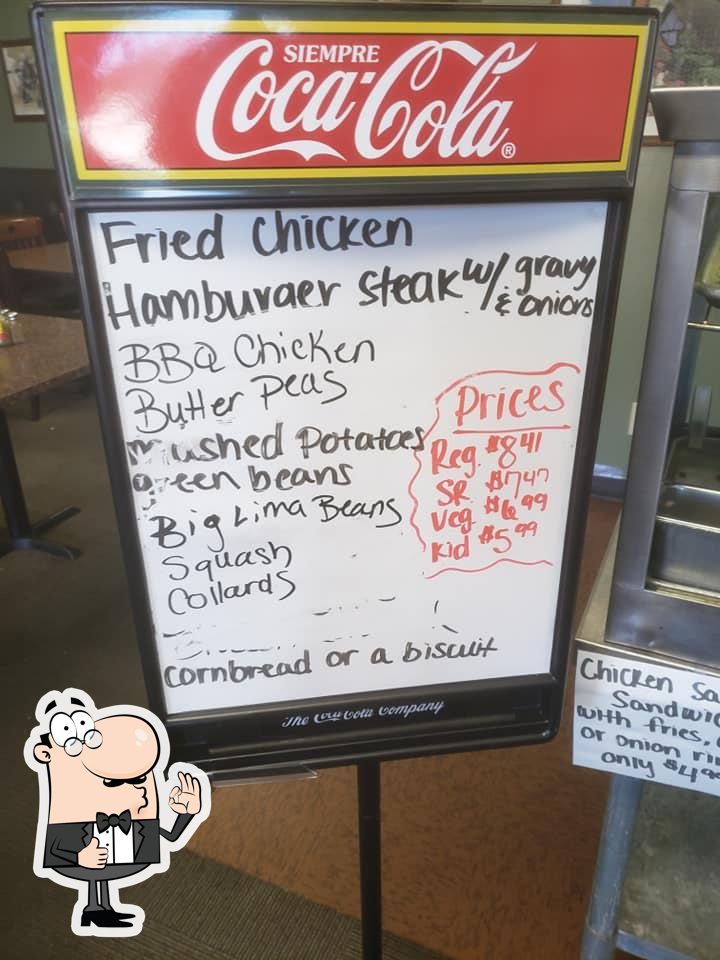 SIEMPRE
Coca-Cola®
Fried Chicken
Hamburger Steak w/ gravy
& onions
BBQ Chicken
Butter Peas
Mashed Potatoes
green beans
Big Lima Beans
Squash
Collards
cornbread or a biscuit
Prices
Reg. $8.41
SR $7.47
Veg. $6.99
Kid $5.99
The Coca-Cola Company
Chicken Sa
Sandwic
with fries,
or onion ri
only $4.9